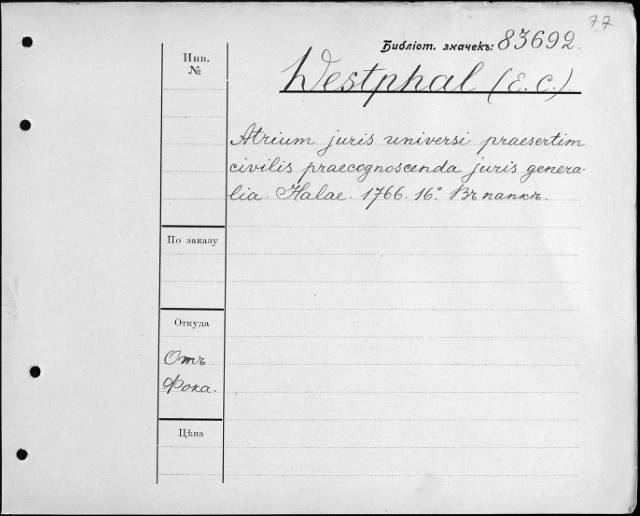 77
Библіот. значекъ: 83692.
Инв.
№
Westphal (E. C.)
Atrium juris universi praesertim
civilis praecognoscenda juris genera-
lia. Halae. 1766. 16°. Въ папкѣ.
По заказу
Откуда
Отъ
Фока.
Цѣна